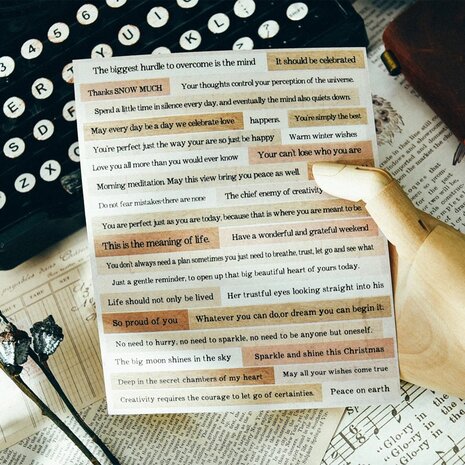 The biggest hurdle to overcome is the mind
It should be celebrated
Thanks SNOW MUCH
Your thoughts control your perception of the universe.
Spend a little time in silence every day, and eventually the mind also quiets down.
May every day be a day we celebrate love.
happens.
You're simply the best.
You're perfect just the way your are so just be happy
Warm winter wishes
Love you all more than you would ever know
Your can't lose who you are
Morning meditation. May this view bring you peace as well
Do not fear mistakes-there are none
The chief enemy of creativity
You are perfect just as you are today, because that is where you are meant to be.
This is the meaning of life.
Have a wonderful and grateful weekend
You don't always need a plan sometimes you just need to breathe, trust, let go and see what
Just a gentle reminder, to open up that big beautiful heart of yours today.
Life should not only be lived
Her trustful eyes looking straight into his
So proud of you
Whatever you can do,or dream you can begin it.
No need to hurry, no need to sparkle, no need to be anyone but oneself.
The big moon shines in the sky
Sparkle and shine this Christmas
Deep in the secret chambers of my heart
May all your wishes come true
Creativity requires the courage to let go of certainties.
Peace on earth